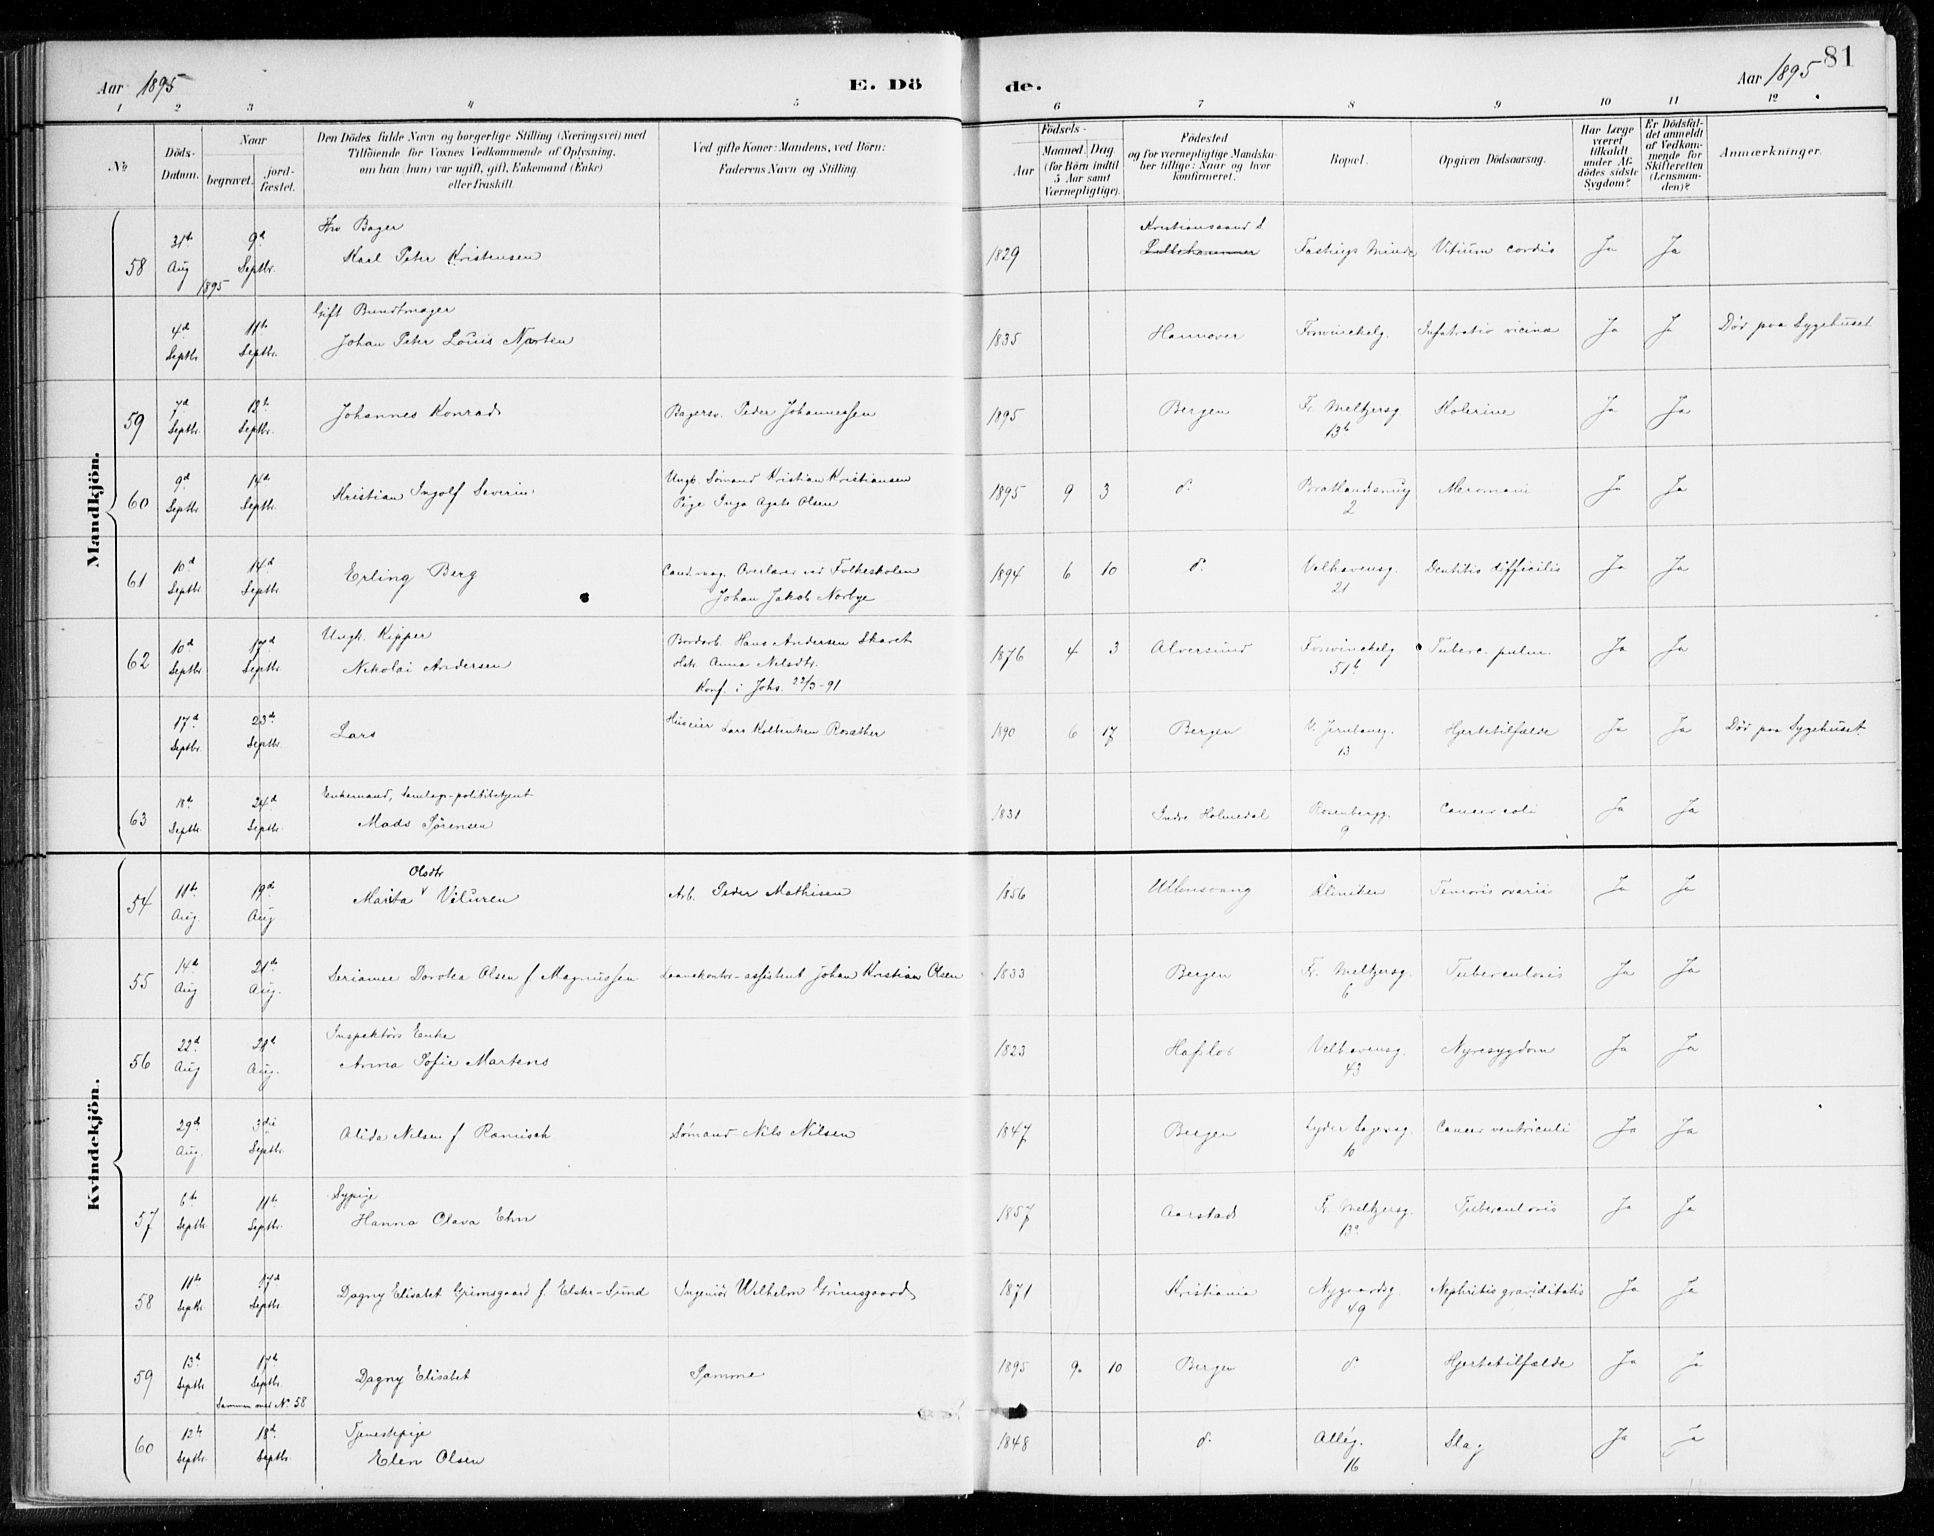 Aar 1895
E. Dö
de.
Aar 1895
81
1 2 3 4 5 6 7 8 9 10 11 12
No
Döds-Datum.
Naar
begravet.
jord-fæstet.
Den Dödes fulde Navn og borgerlige Stilling (Næringsvei) med
Tilföiende for Voxnes Vedkommende af Oplysning,
om han (hun) var ugift, gift, Enkemand (Enke)
eller fraskilt.
Ved gifte Koner: Mandens, ved Börn:
Faderens Navn og Stilling.
Födsels-
Aar
Maaned. Dag.
(for Börn indtil
5 Aar samt
Værnepligtige).
Födested
og for værnepligtige Mandska-
ber tillige: Naar og hvor
konfirmeret.
Bopæl.
Opgiven Dödsaarsag.
Har Læge
været
tilkaldt
under Af-
dödes sidste
Sygdom?
Er Dödsfal-
det anmeldt
af Vedkom-
mende for
Skifteretten
(Lensman-
den)?
Anmærkninger.
Mandkjön.
58 31te Aug 1895 9de Septbr. Bager Karl Peter Kristensen 1829 Kristianssand S. Lillehammer Fastings Minde Vitium cordis Ja Ja
4de Septbr. 11te Septbr. Gift Bundtmager Johan Peter Louis Narten 1835 Hannover Ja Ja Dør paa Sygehuset
59 7de Septbr. 12te Septbr. Johannes Konrad Bagersv. Peder Johannessen 1895 Bergen Fr. Meltzersg. 13b Kolerine Ja Ja
60 9de Septbr. 14de Septbr. Kristian Ingolf Severin Ungk. Sømand Kristian Kristiansen Pige Inga Agate Olsen 1895 9 3 do. 2 Ja Ja
61 10de Septbr. 14de Septbr. Erling Berg Cand. mag. Overlærer ved Folkeskolen Johan Jakob Norbye 1894 6 10 do. Velhavensg. 21 Dentitio difficilis Ja Ja
62 10de Septbr. 17de Septbr. Ungk. Kipper Nikolai Andersen Bordarb. Hans Andersen Skaret Hstr. Anna Nilsdtr. Konf. i Johs. 22/3-91 1876 4 3 Alversund 51b Tuberc. pulm. Ja Ja
17de Septbr. 23de Septbr. Lars Huseier Lars 1890 6 17 Bergen N. Jernbaneg. 13 Hjertetilfælde Ja Ja Dør paa Sygehuset.
63 18de Septbr. 24de Septbr. Enkemand, Mads Sørensen 1831 Indre Holmedal Rosenbergg. 9 Cancer coli Ja Ja
Kvindekjön.
54 11te Aug. 19de Aug Marita Olsdtr Viluren Arb. Peder Mathisen 1856 Ullensvang Kliniken ovarii Ja Ja
55 14de Aug 21de Aug. Dorotea Olsen f. Magnussen Laanekontor-assistent Johan Kristian Olsen 1833 Bergen Fr. Meltzersg. 6 Tuberculosis Ja Ja
56 22de Aug 28de Aug. Inspektørs Enke Anna Sofie Martens 1823 Hafslo Velhavensg. 43 Nyresygdom Ja Ja
29de Aug. 3die Septbr. Alida Nilsen f. Sømand Nils Nilsen 1847 Bergen Lyder Sagensg. 10 Cancer ventriculi Ja Ja
57 6te Septbr. 11te Septbr. Sypige Hanna Olava Ehn 1857 Aarstad Fr. Meltzersg. 13a Tuberculosis Ja Ja
58 11te Septbr. 17de Septbr. Dagny Elisabet Grimsgaard f. Elster-Sund Ingeniør Wilhelm Grimsgaard 1871 Kristiania Nygaardsg. 49 Nephritis graviditatis Ja Ja
59 13de Septbr. 17de Septbr. Sammen med No. 58 Dagny Elisabet Samme 1895 9. 10 Bergen do Hjertetilfælde Ja Ja
60 12te Septbr. 18de Septbr. Tjenestepige Elen Olsen 1848 do. Alleg. 16 Slag Ja Ja